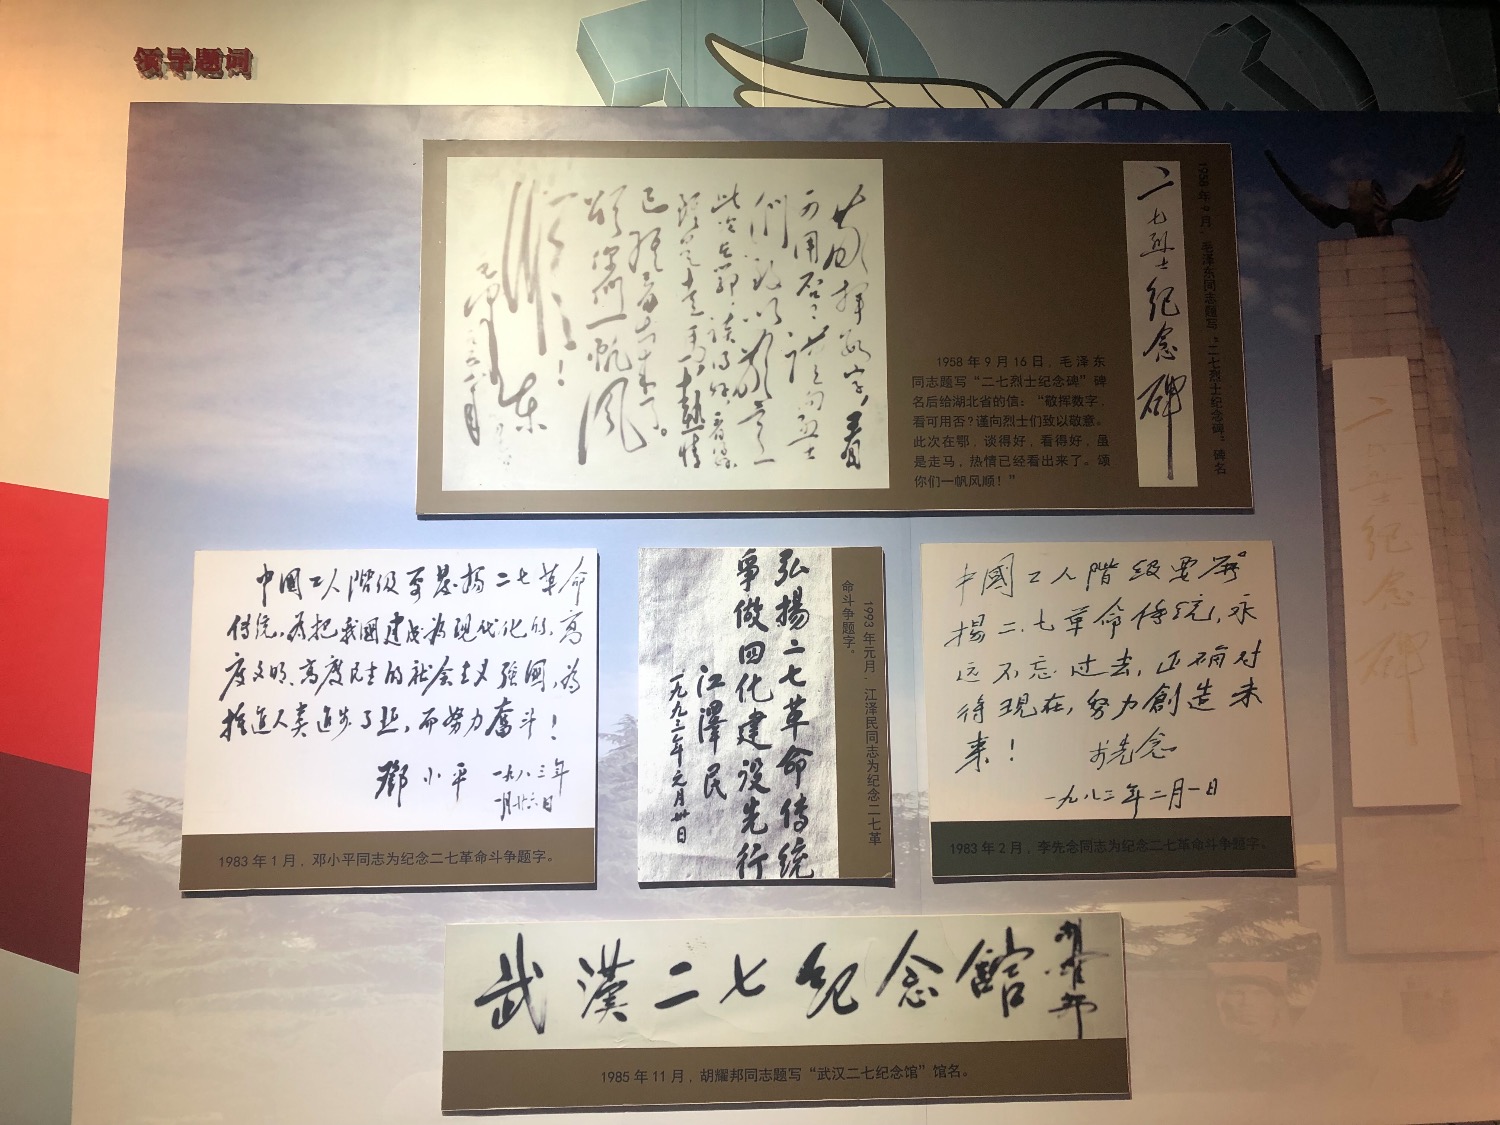 领导题词
敬挥数字，看
可用否？谨向烈士
们致以敬意。
此次在鄂，谈得好，看得好，
虽是走马，热情
已经看出来了。
颂你们一帆风
顺！
毛泽东
二七烈士纪念碑
1958年9月，毛泽东同志题写“二七烈士纪念碑”碑名
1958年9月16日，毛泽东
同志题写“二七烈士纪念碑”碑
名后给湖北省的信：“敬挥数字，
看可用否？谨向烈士们致以敬意。
此次在鄂，谈得好，看得好，虽
是走马，热情已经看出来了。颂
你们一帆风顺！”
二七烈士纪念碑
中國工人階级要發揚二七革命
传统，为把我國建成为现代化的、高
度文明、高度民主的社会主义强國，为
推进人类进步事业，而努力奮斗！
鄧小平 一九八三年
一月廿六日
1983年1月，邓小平同志为纪念二七革命斗争题字。
弘揚二七革命傳統
爭做四化建设先行
江澤民
一九九三年元月卅日
1993年元月，江泽民同志为纪念二七革
命斗争题字。
中國工人階级要發
揚二、七革命传统，永
远不忘过去，正确对
待现在，努力創造未
来！ 李先念
一九八三年二月一日
1983年2月，李先念同志为纪念二七革命斗争题字。
武漢二七纪念館 胡耀邦
1985年11月，胡耀邦同志题写“武汉二七纪念馆”馆名。